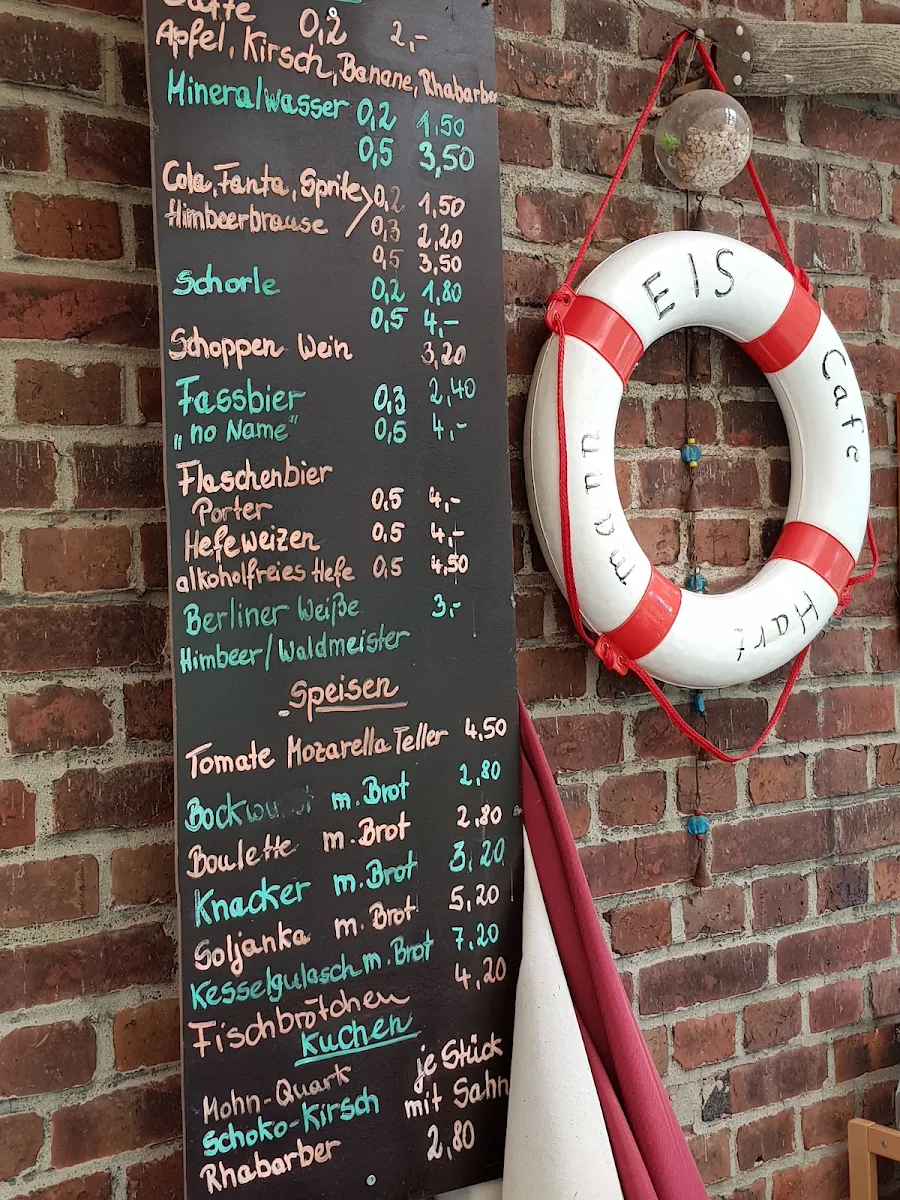 Säfte 0,2 2,-
Apfel, Kirsch, Banane, Rhabarber
Mineralwasser 0,2 1,50
0,5 3,50
Cola, Fanta, Sprite 0,2 1,50
Himbeerbrause 0,3 2,20
0,5 3,50
Schorle 0,2 1,80
0,5 4,-
Schoppen Wein 3,20
Fassbier 0,3 2,40
„no Name" 0,5 4,-
Flaschenbier
Porter 0,5 4,-
Hefeweizen 0,5 4,-
alkoholfreies Hefe 0,5 4,50
Berliner Weiße 3,-
Himbeer/Waldmeister
Speisen
Tomate Mozarella Teller 4,50
Bockwurst m. Brot 2,80
Boulette m. Brot 2,80
Knacker m. Brot 3,20
Soljanka m. Brot 5,20
Kesselgulasch m. Brot 7,20
Fischbrötchen 4,20
Kuchen
Mohn-Quark je Stück
Schoko-Kirsch mit Sahn
Rhabarber 2,80
EIS
Cafe
Hart
mann